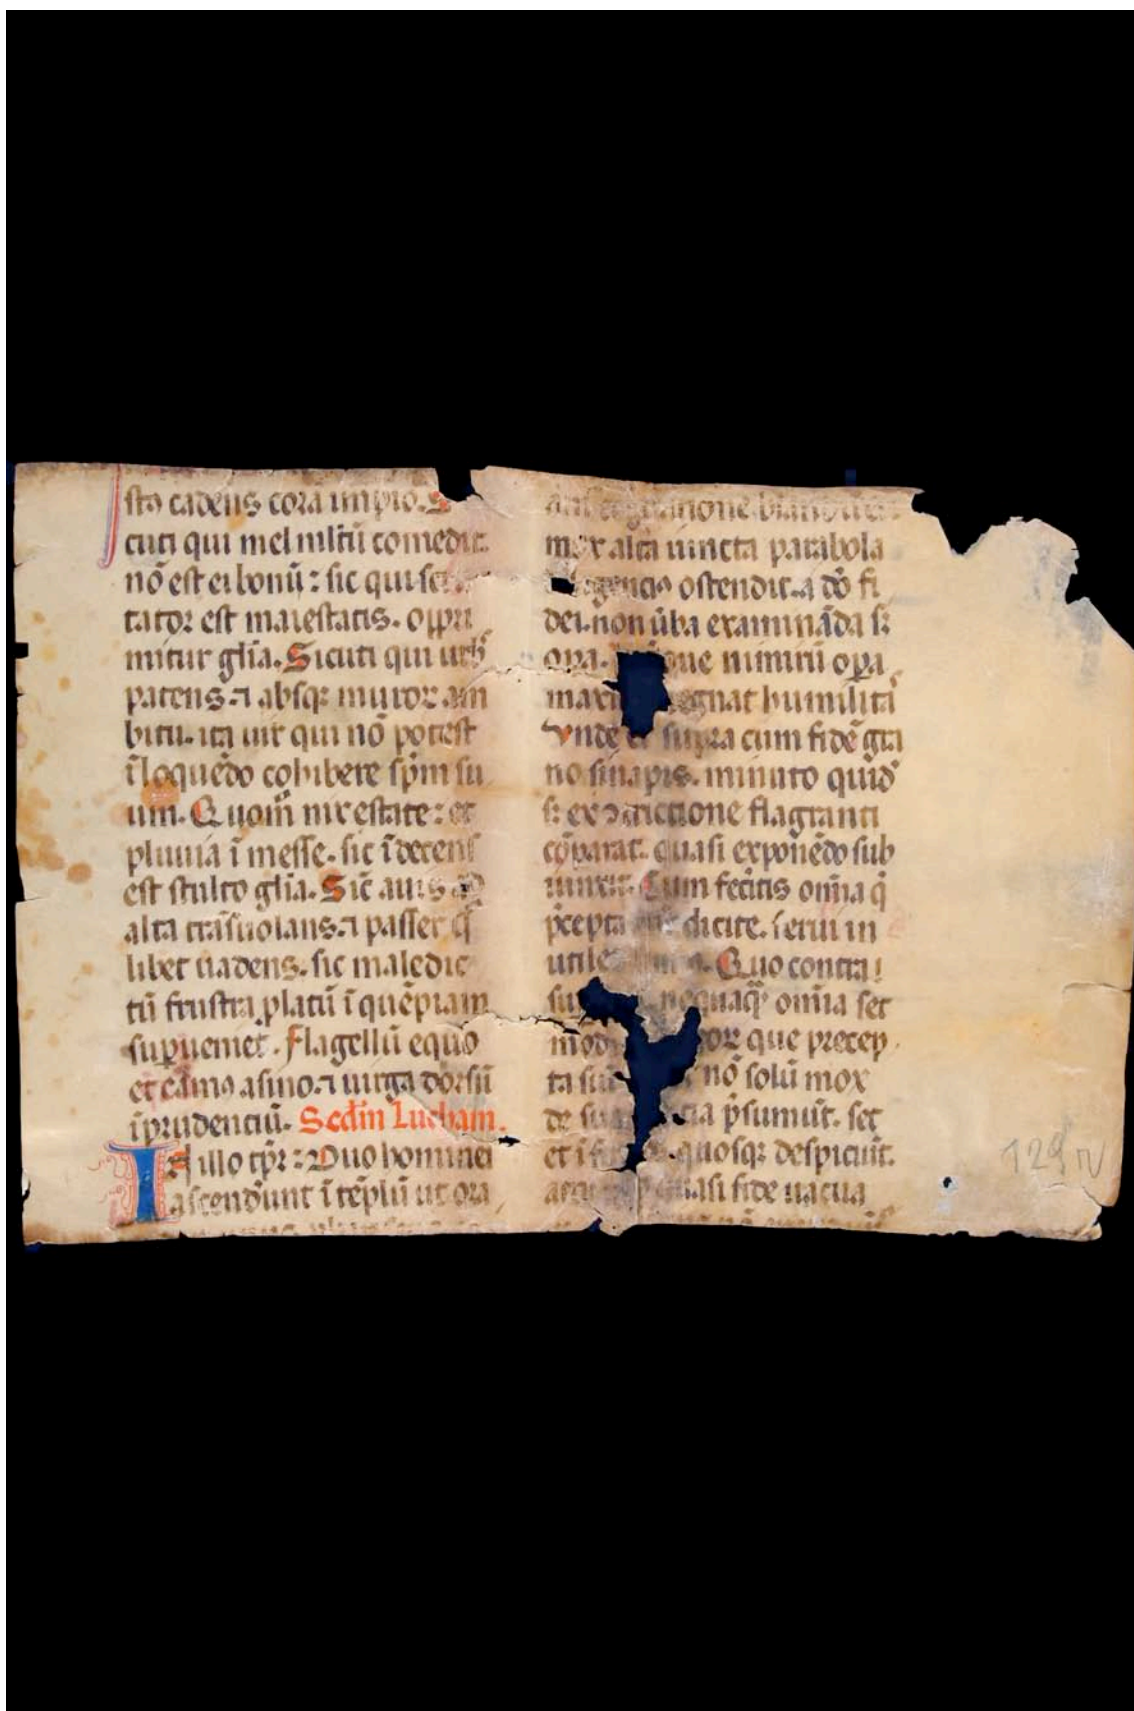 stꝰ cadens cora impio. S
cuti qui mel miltū comedit.
nō est ei bonū : sic qui sc
tator est maiestatis. oppri
mitur glia. Sicuti qui urbs
patens. ⁊ absqꝫ muroꝝ am
bitu. ita uir qui nō potest
ī loquēdo cohibere spm̄ su
um. Quom̄ nix estate : et
pluuia ī messe. sic īdecens
est stulto glia. Sic̄ auis ad
alta trāsuolans. ⁊ passer q̄
libet uadens. sic maledic
tū frustra ꝓlatū ī quēpiam
supueniet. Flagellū equo
et camꝰ asino. ⁊ uirga dorsū
īprudenciū. Scd̄m Lucham.
In illo tp̄r : Duo homines
ascend̄unt ī tēplū ut ora
mox alta iuncta parabola
ostendit. a dō fi
dei. non ūba examināda sꝫ
opa. que nimirū opa
egnat humilita
Vnde et supra cum fidē gra
no sinapis. minuto quid̄
sꝫ ex ꝯdictione flagranti
cōparat. quasi exponēdo sub
iunxit. Cum fec̄itis om̄ia q̄
p̄cepta dicite. serui in
utile Quo contra
nequaq̄ om̄ia set
or que precep
ta nō solū mox
de sua p̄sumūt. set
et i quosqꝫ despiciūt.
quasi fide uacua
129 v